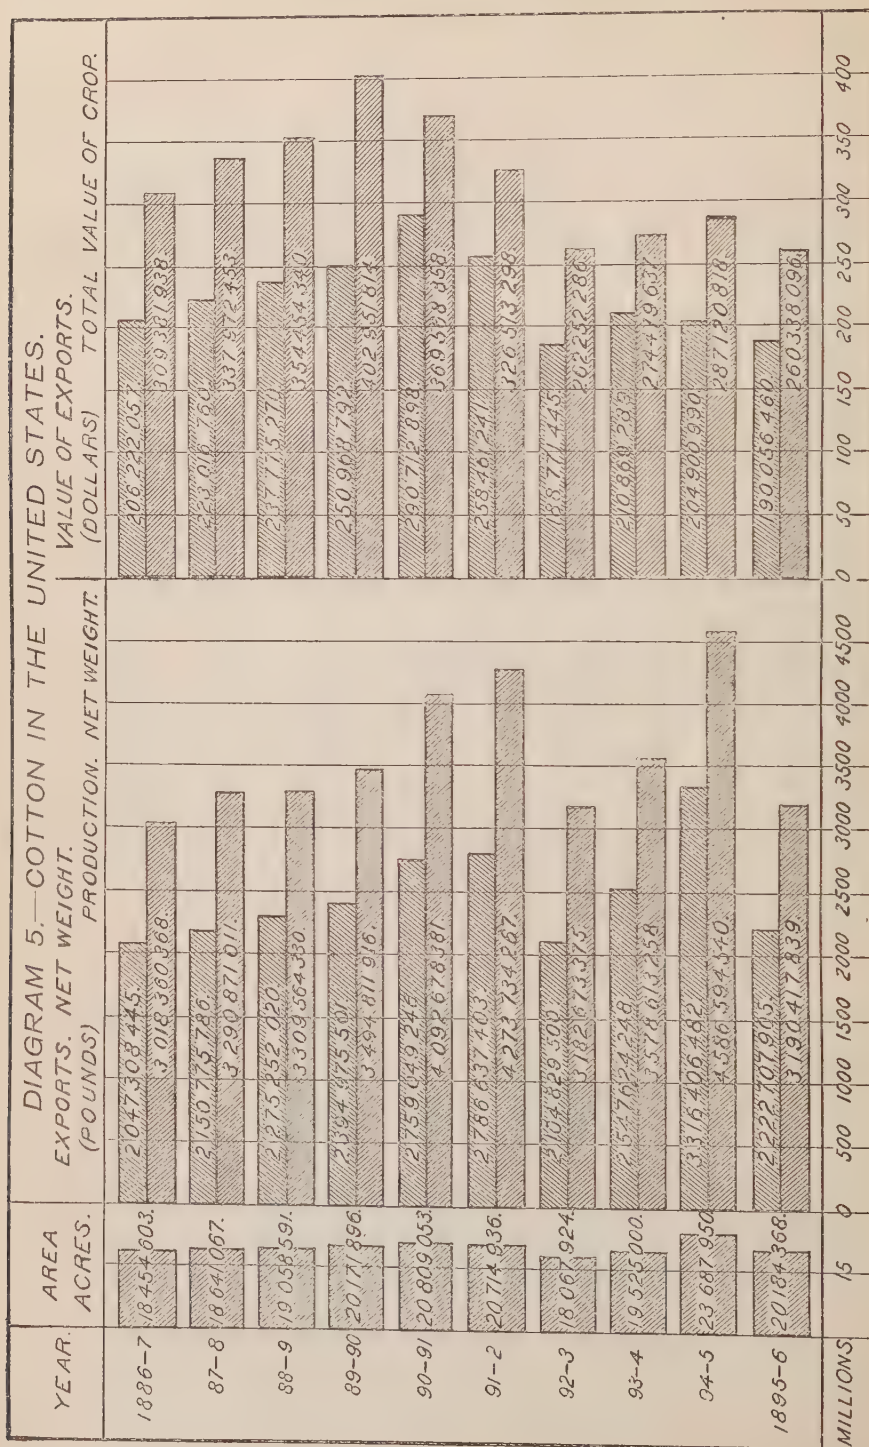 DIAGRAM 5.—COTTON IN THE UNITED STATES.
YEAR.
AREA
ACRES.
EXPORTS. NET WEIGHT.
(POUNDS) PRODUCTION. NET WEIGHT.
VALUE OF EXPORTS.
(DOLLARS) TOTAL VALUE OF CROP.
1886-7 18 454 603. 2 047 308 445. 3 018 360 368. 206 222 057. 309 381 938.
87-8 18 641 067. 2 150 775 786. 3 290 871 011. 223 016 760. 337 972 453.
88-9 19 058 591. 2 275 252 020. 3 309 564 330. 237 775 270. 354 454 340.
89-90 20 171 896. 2 394 975 501. 3 494 811 916. 250 968 792. 402 951 814.
90-91 20 809 053. 2 759 049 246. 4 092 678 381. 290 712 898. 369 568 858.
91-2 20 714 936. 2 786 637 403. 4 273 734 267. 258 461 241. 326 513 298.
92-3 18 067 924. 2 104 829 500. 3 182 673 375. 188 771 445. 262 252 286.
93-4 19 525 000. 2 547 624 248. 3 578 613 258. 210 869 289. 274 479 637.
94-5 23 687 950. 3 316 406 482. 4 586 594 540. 204 900 990. 287 120 818.
1895-6 20 184 368. 2 222 707 905. 3 190 417 839. 190 056 460. 260 338 096.
MILLIONS 15 0 500 1000 1500 2000 2500 3000 3500 4000 4500 0 50 100 150 200 250 300 350 400